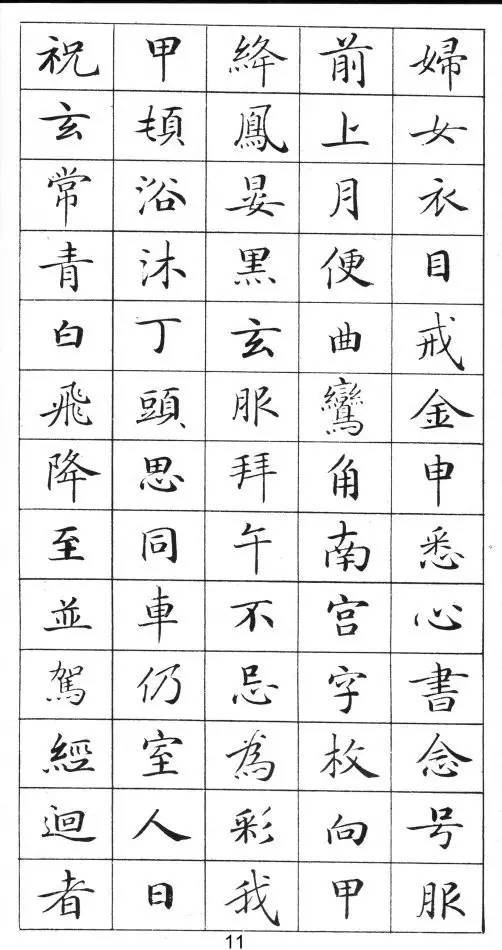 婦女衣目戒金申悉心書念号服
前上月便曲鸞角南宫字枚向甲
絳鳳晏黑玄服拜午不忌為彩我
甲頓浴沐丁頭思同車仍室人日
祝玄常青白飛降至並駕經迴者
11